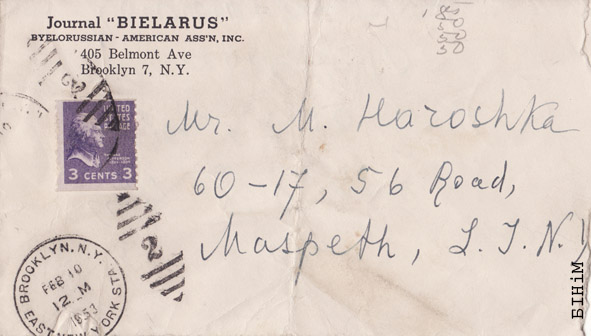 Journal "BIELARUS"
BYELORUSSIAN - AMERICAN ASS'N, INC.
405 Belmont Ave
Brooklyn 7, N.Y.
UNITED
STATES
POSTAGE
3 CENTS 3
2
2
Mr. M. Haroshka
60-17, 56 Road,
Maspeth, L.I.N.Y
BROOKLYN. N.Y.
FEB 10
12 M
1953
EAST NEW YORK STA.
BIHiM